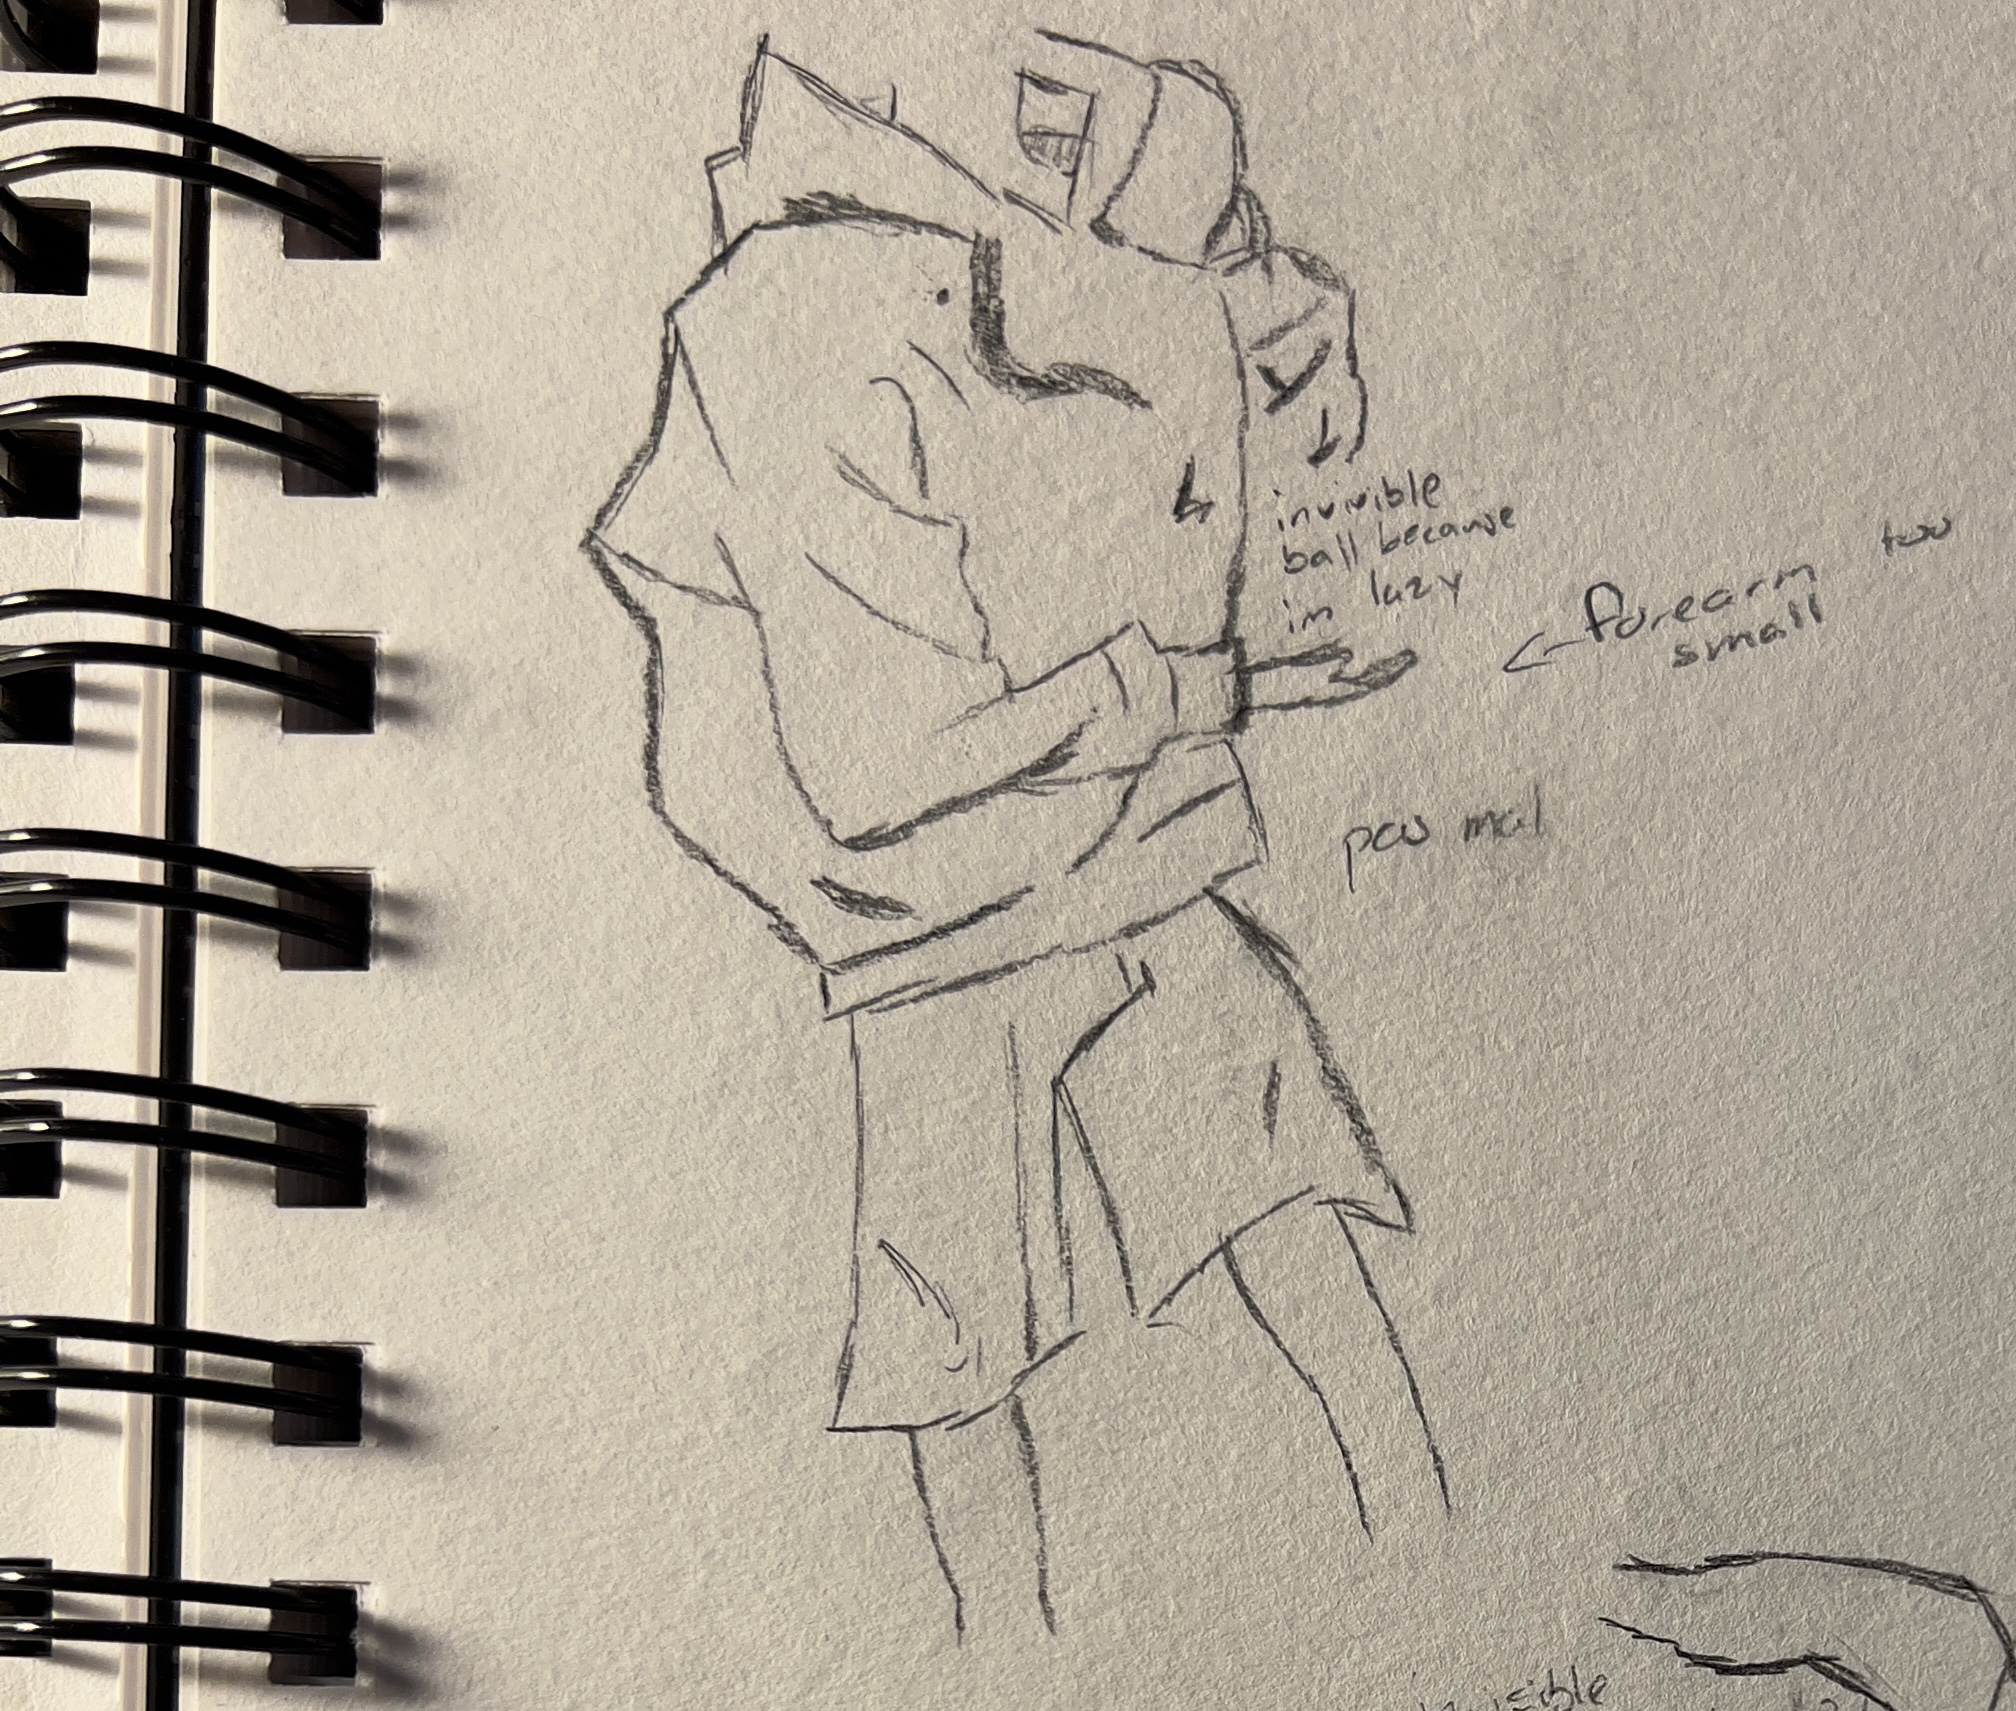 invisible
ball because
im lazy
forearm too
small
pas mal
invisible